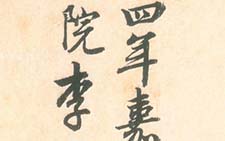 四年嘉
院李